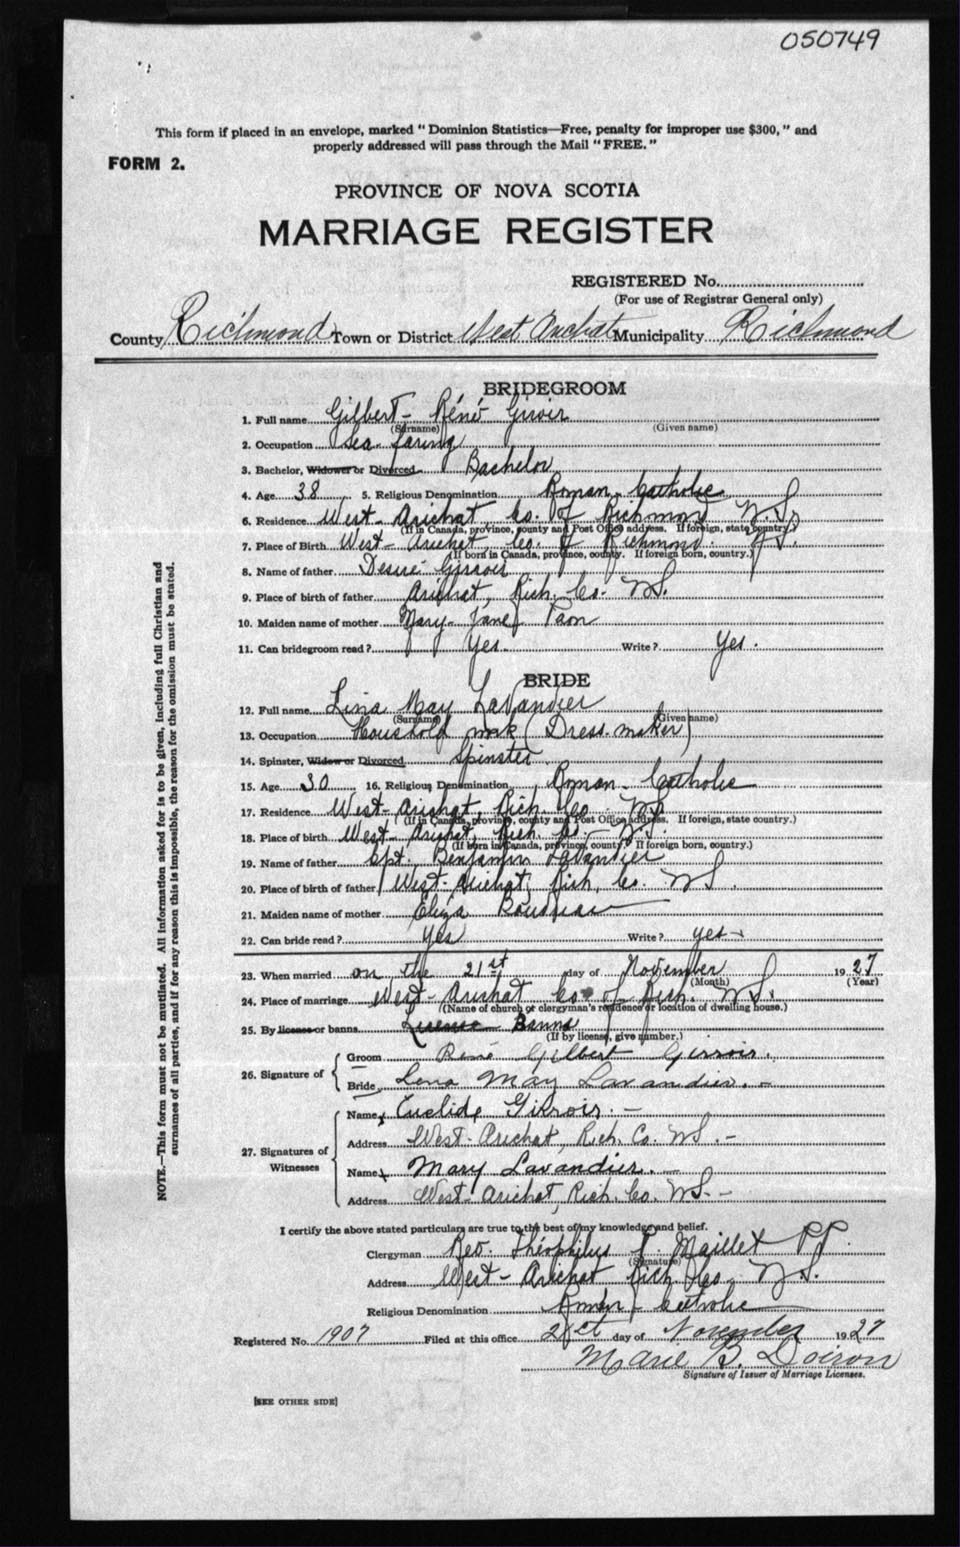 050749
This form if placed in an envelope, marked "Dominion Statistics—Free, penalty for improper use $300," and
properly addressed will pass through the Mail "FREE."
FORM 2.
PROVINCE OF NOVA SCOTIA
MARRIAGE REGISTER
REGISTERED No.
(For use of Registrar General only)
County Richmond Town or District West Arichat Municipality Richmond
BRIDEGROOM
1. Full name Gilbert- Réné Girroir
(Surname) (Given name)
2. Occupation Sea-faring
3. Bachelor, Widower or Divorced Bachelor
4. Age 38 5. Religious Denomination Roman-Catholic
6. Residence West-Arichat, Co. of Richmond N.S.
(If in Canada, province, county and Post Office address. If foreign, state country.)
7. Place of Birth West-Arichat, Co. of Richmond. N.S.
(If born in Canada, province, county. If foreign born, country.)
8. Name of father Desiré Girroir
9. Place of birth of father Arichat, Rich. Co. N.S.
10. Maiden name of mother Mary-Jane
11. Can bridegroom read? Yes. Write? Yes.
BRIDE
12. Full name Lina May LaVandier
(Surname) (Given name)
13. Occupation Household work (Dress-maker)
14. Spinster, Widow or Divorced Spinster
15. Age 30 16. Religious Denomination Roman-Catholic
17. Residence West-Arichat, Rich. Co. N.S.
(If in Canada, province, county and Post Office address. If foreign, state country.)
18. Place of birth West-Arichat, Rich. Co.- N.S.
(If born in Canada, province, county. If foreign born, country.)
19. Name of father Cpt. Benjamin LaVandier
20. Place of birth of father West-Arichat, Rich. Co. N.S.
21. Maiden name of mother Eliza Boudreau
22. Can bride read? Yes Write? yes
23. When married on the 21st day of November 1927
(Month) (Year)
24. Place of marriage West-Arichat Co. of Rich. N.S.
(Name of church or clergyman's residence or location of dwelling house.)
25. By license or banns License Banns
(If by license, give number.)
26. Signature of
Groom René Gilbert Girroir.
Bride Lena May Lavandier.-
27. Signatures of Witnesses
Name Euclide Girroir.-
Address West-Arichat, Rich. Co. N.S.-
Name Mary Lavandier.-
Address West-Arichat, Rich. Co. N.S.-
I certify the above stated particulars are true to the best of my knowledge and belief.
Clergyman Rev. Théophilus Maillet P.P.
(Signature)
Address West-Arichat Rich. Co. N.S.
Religious Denomination Roman Catholic
Registered No. 1907 Filed at this office 21st day of November 1927
Marie B. Doiron
Signature of Issuer of Marriage Licenses.
[SEE OTHER SIDE]
NOTE.—This form must not be mutilated. All information asked for is to be given, including full Christian and
surnames of all parties, and if for any reason this is impossible, the reason for the omission must be stated.